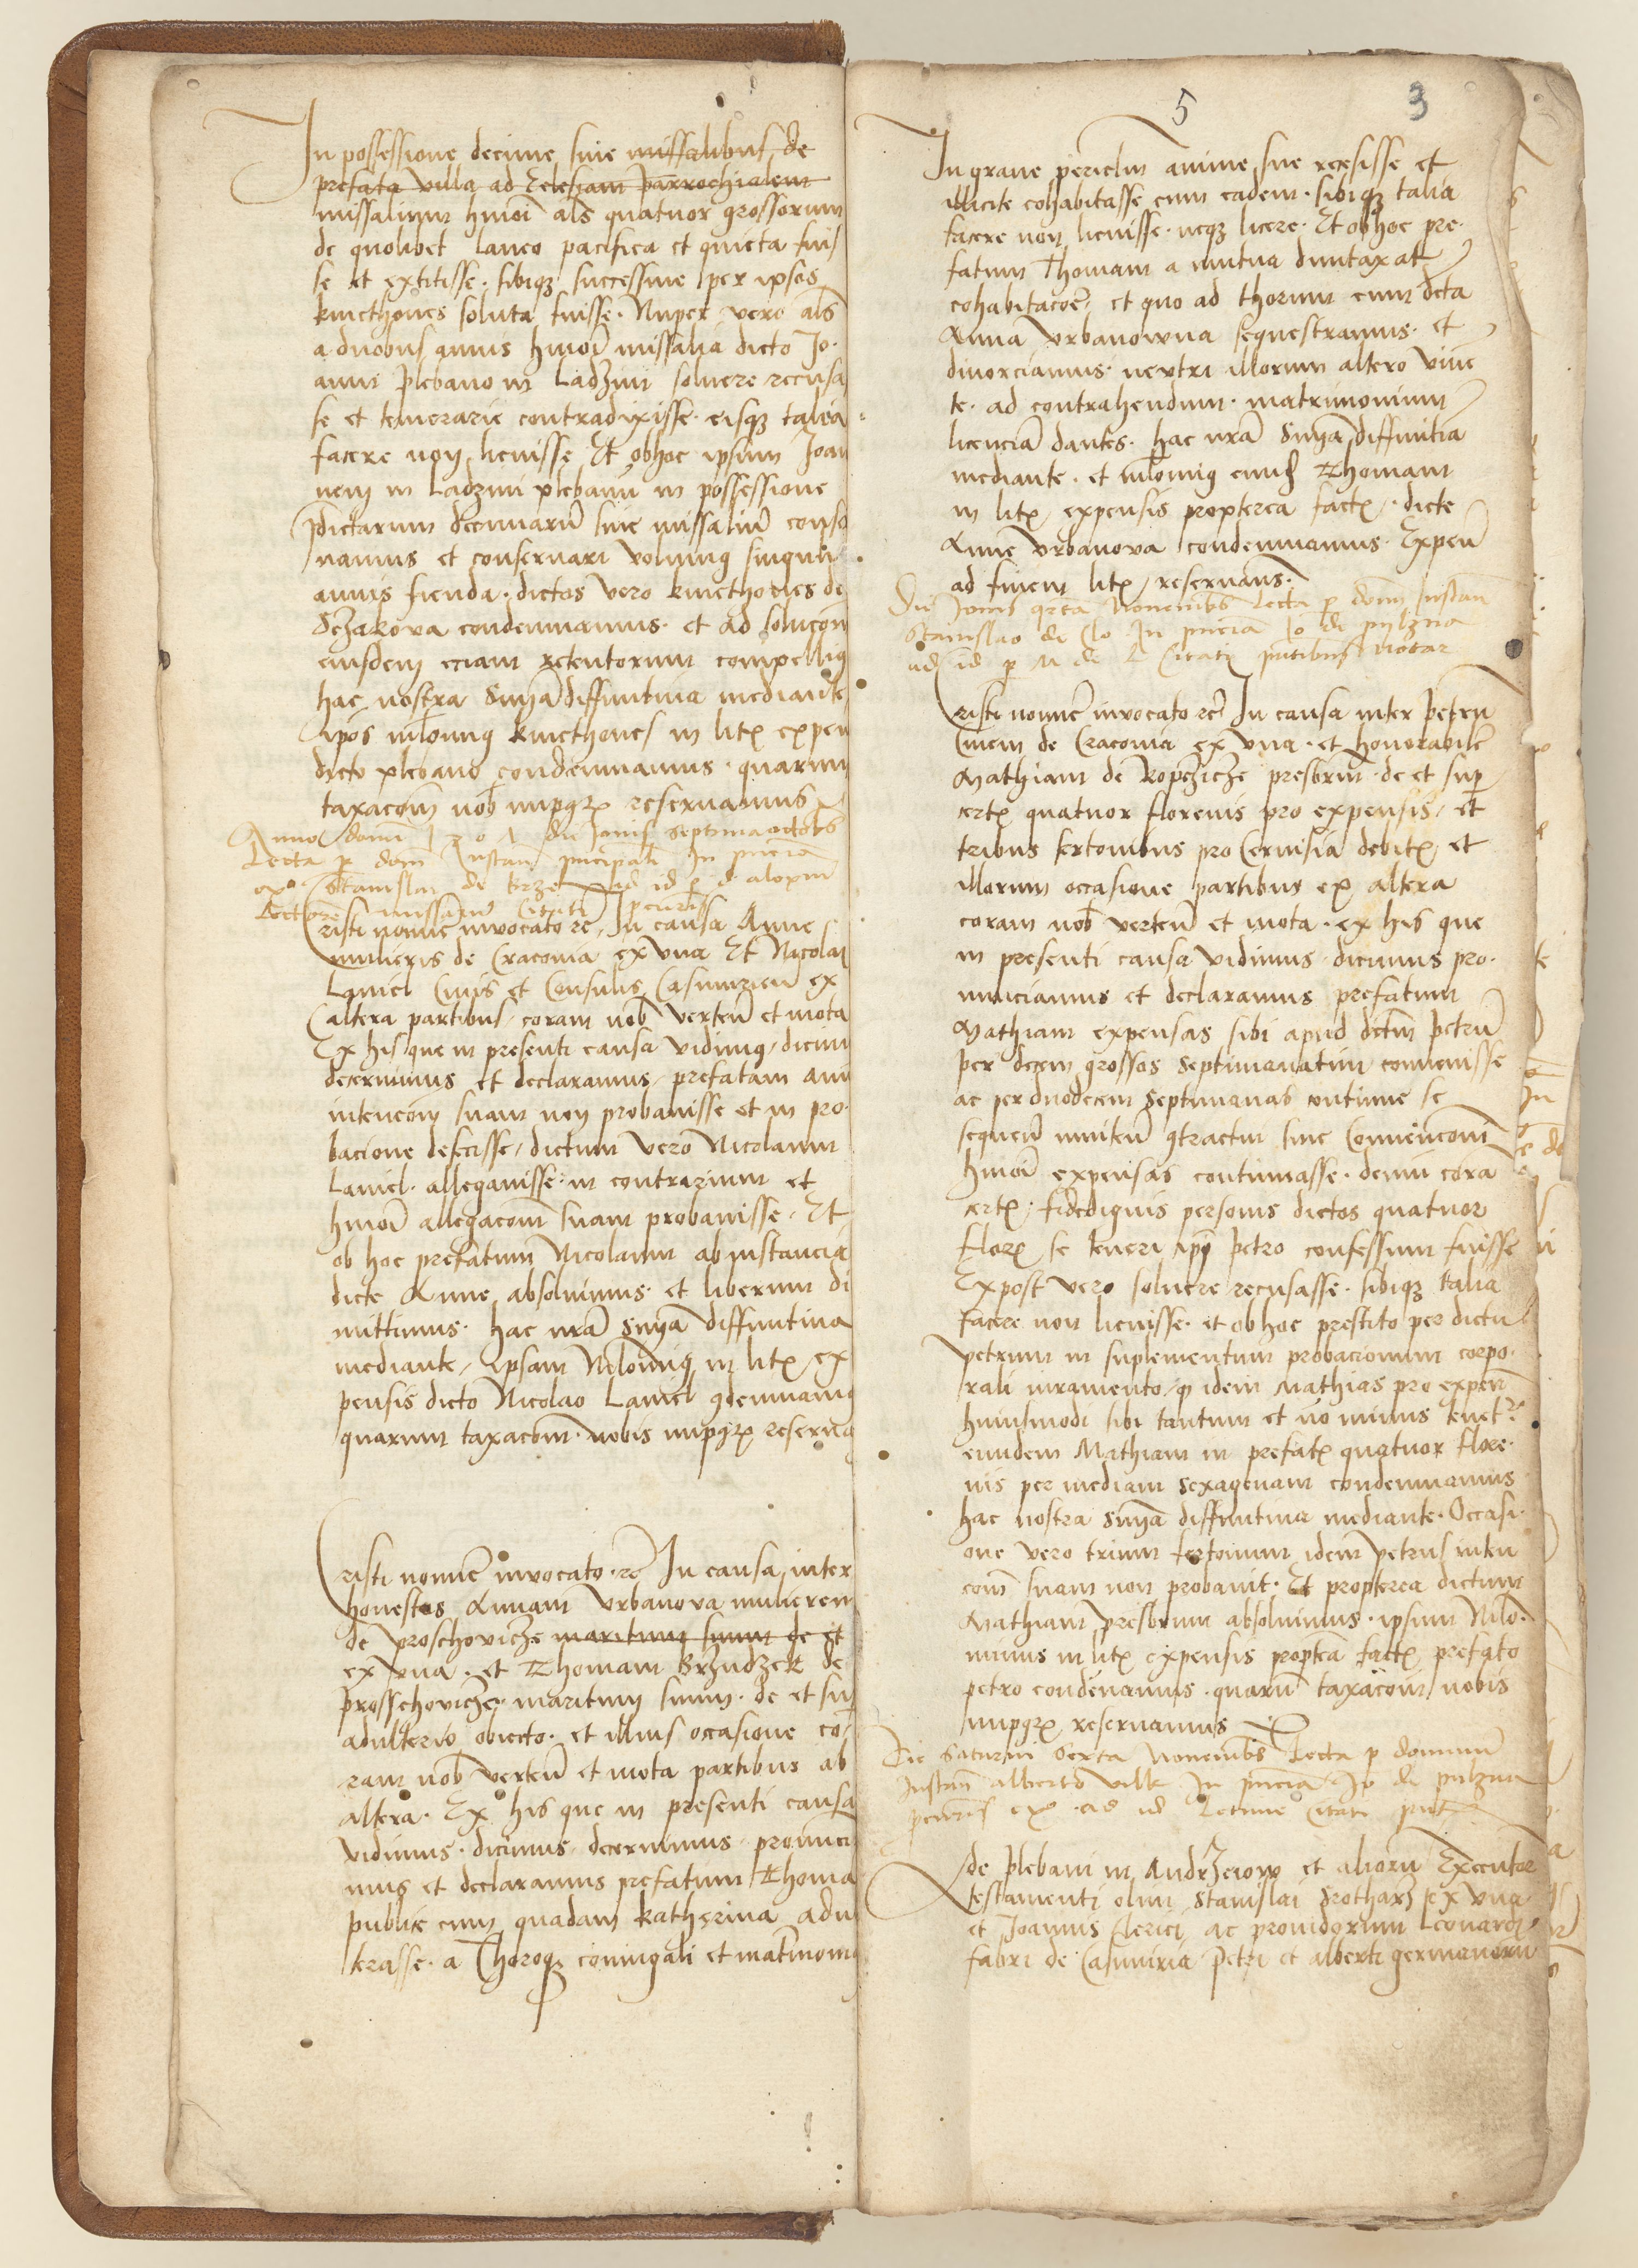 In possessione decime sive missalibus de
prefata villa ad Eclesiam parrochialem
missalium hmoi als quatuor grossorum
de quolibet laneo pacifica et quieta fuis
se et extitisse · sibique successive per ipsos
kmethones soluta fuisse · Nuper vero als
a duobus annis hmoi missalia dicto Jo·
anni plebano in Ladzini solvere recusas
se et temerarie contradixisse · eisque talia
facere non licuisse Et obhoc ipsum Joan
nem in Ladzini plebanu in possessione
pdictarum decimaru sive missaliu conser
vamus et conservari volumus singulis
annis fienda · dictos vero kmethones de
condemnamus · et ad solucom
eiusdem eciam retentorum compellimus
hac nostra Snia diffinitiva mediante
ipos nilominus kmethones in litis expen
dicto plebano condemnamus · quarum
taxacom nob inposteru reservamus
Anno domi die Jovis septima octobris
Lecta p dom Instan principali In pncia
Stanislai de
Cristi nomine invocato etc In causa Anne
mulieris de Cracovia ex una Et Nicolai
Laniel Civis et Consulis Casimirien ex
altera partibus coram nob verten et mota
Ex his que in presenti causa vidimus dicim
decernimus et declaramus prefatam ann
intencom suam non probavisse et in pro·
bacione defecisse dictum vero Nicolaum
Laniel · allegavisse in contrarium et
hmoi allegacom suam probavisse · Et
ob hoc prefatum Nicolaum ab instancia
dicte Anne absolvimus · et liberum di
mittimus · hac nra Snia diffinitiva
mediante ipsam Nilominus in litis ex
pensis dicto Nicolao Laniel condemnamus
quarum taxacom nobis inposteru reserva
Cristi nomine invocato · etc In causa inter
honestos Annam Urbanova mulierem
de proschovicze maritum suum de et
ex una · et Thomam Brzudzek de
prosschovicze maritum suum · de et sup
adulterio obiecto · et illius occasione co
ram nob verten et mota partibus ab
altera · Ex his que in presenti causa
vidimus · dicimus decernimus pronunci
mus et declaramus prefatum Thoma
publice cum quadam katherina adul
terasse · a Thoroque coniugali et matrimonio
5 3
In grave periclm anime sue recesisse et
illicite cohabitasse cum eadem · sibique talia
facere non licuisse · neque licere · Et obhoc pre·
fatum Thomam a mutua duntaxat
cohabitacoe et quo ad thorum cum dcta
Anna Urbanowna sequestramus · et
divorciamus · neutri illorum altero viven
te · ad contrahendum · matrimonium
licencia dantes · hac nra Snia diffinitia
mediante · et nilominus eund Thomam
in litis expensis propterea factis · dicte
Anne Urbanova condemnamus · Expen
ad finem litis reservans ·
Die Jovis qrta Novembris Lecta p dom Instan
Stanislao de Clo In pncia Jo de pylzna
Cristi nomine invocato etc In causa inter petru
Civem de Cracovia ex una · et honorabile
Mathiam de Ropczicze presbrm · de et sup
certis quatuor florenis pro expensis et
tribus fertonibus pro Cervisia debitis et
illorum occasione partibus ex altera
coram nob verten et mota · ex his que
in presenti causa vidimus dicimus pro·
nunciamus et declaramus prefatum
Mathiam expensas sibi apud dictm petru
per decem grossos septimanatim convenisse
ac per duodecem septimanas continue se
sequen iuxta contractum sive Convencom
hmoi expensas continuasse · demu cora
certis fidedignis personis dictos quatuor
flor se teneri ipi petro confessum fuisse
Expost vero solvere recusasse · sibique talia
facere non licuisse · et obhoc prestito per dictu
petrum in suplementum probacionum corpo·
rali iuramento q idem Mathias pro expen
huiusmodi sibi tantum et no minus tenetr
eundem Mathiam in prefatis quatuor flore·
nis per mediam sexagenam condemnamus
hac nostra Snia diffinitiva mediante · Occasi·
one vero trium fertonum idem petrus inten
com suam non probavit · Et propterea dictum
Mathiam presbrum absolvimus · ipsum Nilo·
minus in litis expensis proptea factis prefato
petro condemnamus · quaru taxacom nobis
inposteru reservamus
Die Saturni Sexta Novembris Lecta p dominum
Instan alberto In pncia Jo de pulzna
de plebani in Andrzeiow et alioru Executor
testamenti olim Stanislai ex una
et Joannis Clerici ac providorum Leonardi
fabri de Casimiria petri et alberti germanoru